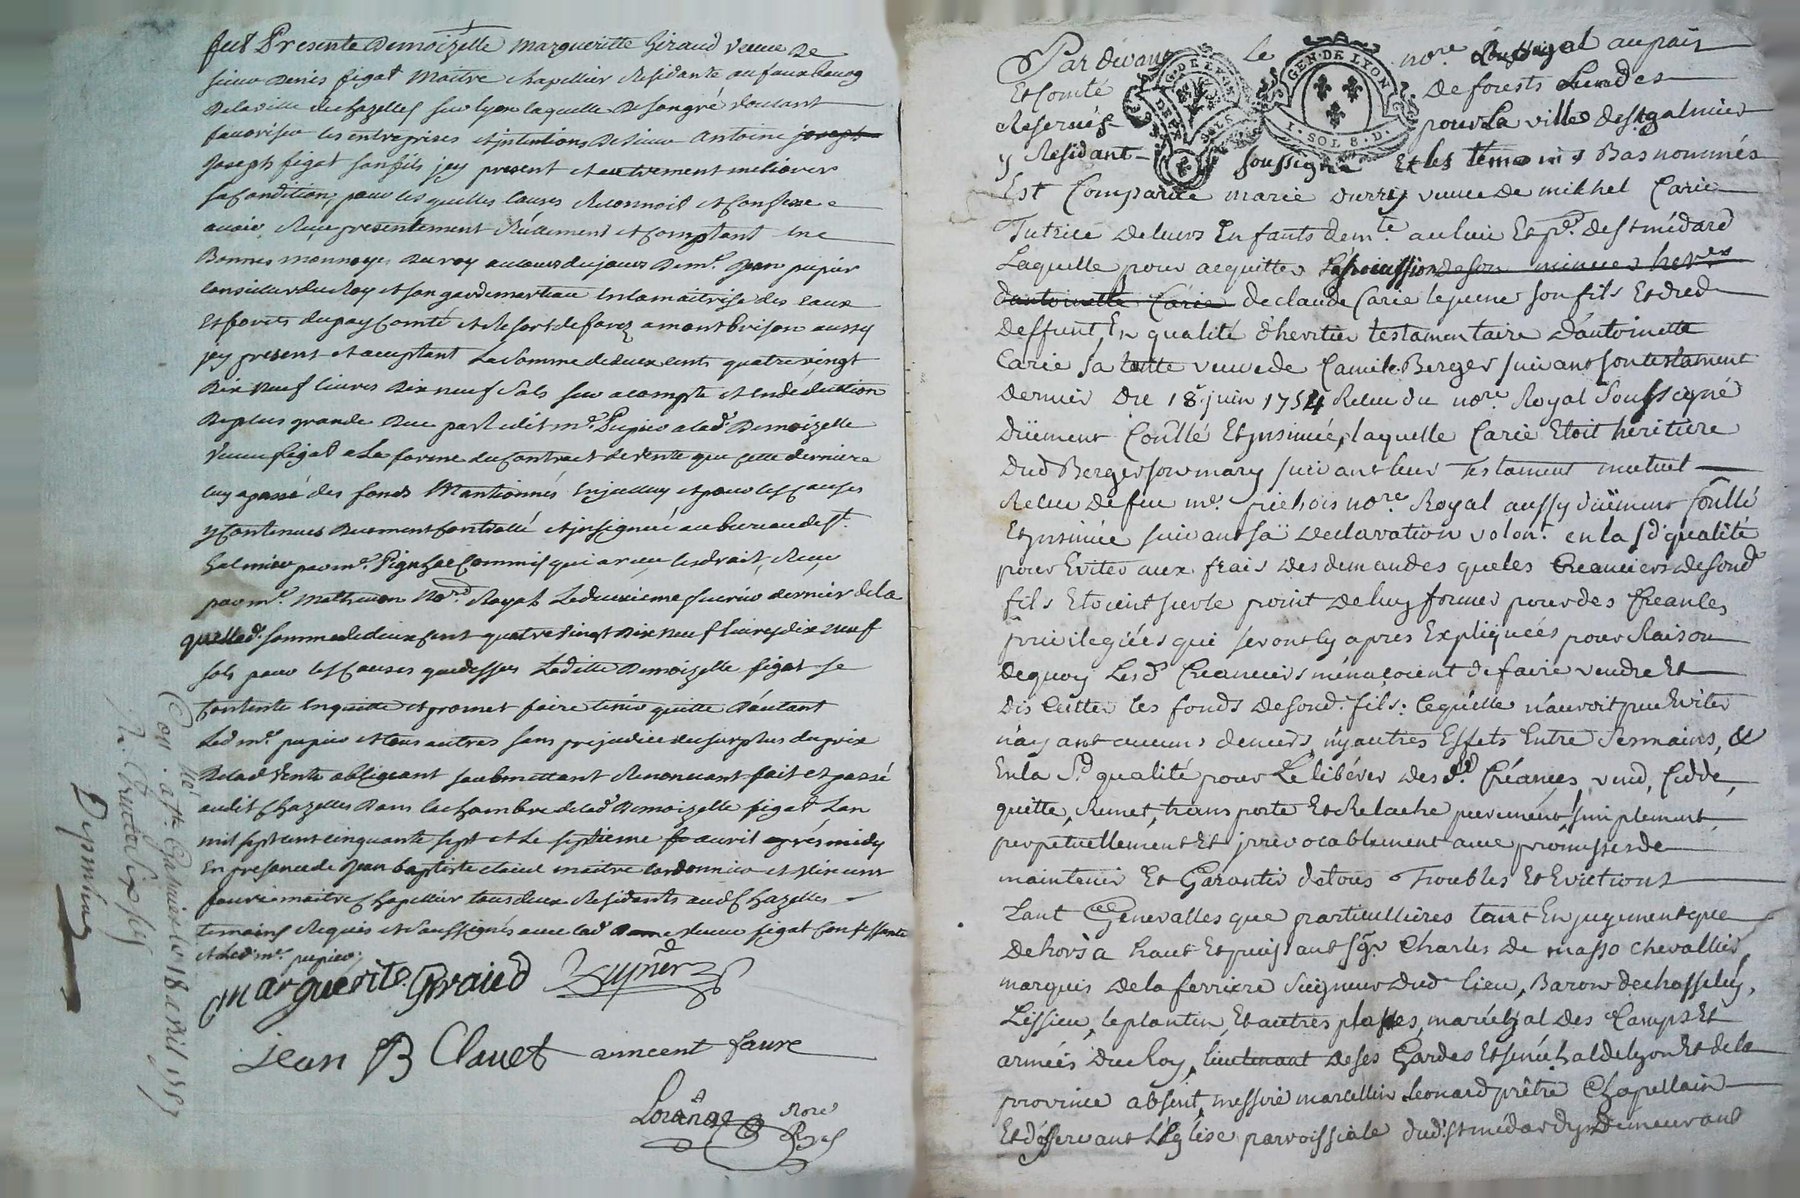 fut Presente Demoizelle Margueritte Giraud veuve De
sieur Denis figat Maitre chapellier Residante au fauxbourg
De la ville de chazelles sur lyon laquelle De son gré voulant
favoriser les entreprises et jntentions De sieur Antoine joseph
Joseph figat son fils jcy present et autrement meliorer
sa Condition, pour lesquelles Causes Reconnoit et Confesse
avoir Reçu presentement Réellement et Comptant en
Bonnes monnoyes Du roy au cours du jour De mr. Jean pupier
Conseiller du Roy et son garde marteau En la maitrise des eaux
et forets du pay Comté et Resort de forez a montbrison aussy
jcy present et acceptant La somme de deux cents quatre vingt
Dix neuf livres Dix neuf sols sur a compte et En deduction
De plus grande Due par ledit mr. Pupier a lad. Demoizelle
veuve figat a La forme du Contract de vente que cette derniere
luy a passé des fonds Mantionnés En jcelluy et pour les Causes
y Contenues Duement Controllé et jnsignué au bureau de St.
Galmier par mr. Commis qui a reçu les droits, Reçu
par mr. Mathevon No.re Royal Le deuxieme fevrier dernier de la
quelle d. somme de deux cent quatre vingt Dix neuf livres dix neuf
sols pour les Causes que dessus Ladite Demoizelle figat se
Contente En quitte et promet faire tenir quitte D'autant
Led. mr. pupier et tous autres sans prejudice du surplus du prix
De lad. vente obligeant soubmettant Renonceant fait et passé
audit Chazelles Dans la chambre de lad. Demoizelle figat L'an
mil sept cent cinquante sept et Le septieme avril aprés midy
En presance de Jean baptiste clavet maitre Cordonnier et vincent
faure maitre chapellier tous deux Residants aud. Chazelles
temoins Requis et Soussignés avec lad. Dame veuve figat Confessante
et led. mr. pupier.
Marguerite Giraud Pupier
Jean B Clavet vincent faure
Lorange Nore Royal
Con.llé a St. Galmier le 18 avril 1757
R. treize sols
Par devant Le nore. Royal au pais
Et Comté De forests L'un des
Reservés pour La ville de st galmier
y Residant soussigné Et les témoins Bas nommés
Est Comparue marie Durry veuve De mikhel Carie
Tutrice De leurs Enfants demte. au lieu Et pse. de st médard
Laquelle pour acquitter La succession de son mineur her.er
d'antoinette Carie De claude Carie le jeune son fils Et dud.
Deffunt, En qualité d'heritier testamentaire D'antoinette
Carie sa tante veuve de Camile Berger suivant son testament
Dernier Du 18e. juin 1754 Reçu du nore. Royal Soussigné
Düement Coñllé Et jnsinué, laquelle Carie Etoit heritiere
Dud Berger son mary suivant leur Testament mutuel
Relu De feu me. nore. Royal aussy düement Coñllé
Et jnsinué suivant sa Declaration volon.e en la Sd. qualité
pour Eviter aux frais Des demandes que les Creanciers De sond
fils Etoient sur le point De luy former pour des Creanles
privilegiées que seront cy aprés Expliquées pour Raison
De quoy Lesd. Creanciers menaçoient de faire vendre Et
discutter les fonds De sond. fils: Ce qu'elle n'auroit pu Eviter
n'ayant aucuns deniers, ny autres Effets Entre Ses mains, &
En la Sd. qualité pour Le libérer Des d. Créances, vend, Cedde,
quitte, Remet, transporte Et Relache purement simplement
perpetuellement Et jrrevocablement avec promesses de
maintenir Et Garantir de tous Troubles Et Evictions
Tant Generalles que particullières tant En jugement que
De hors a haut Et puissant Sgr. Charles De masso chevallier
marquis De la ferriere Seigneur Dud lieu, Baron de chasseley,
Lissieu, le plantin, Et autres places, maréchal des Camps Et
armées Du Roy, lieutenant De ses Gardes Et sénéchal de lyon Et de la
province absent, messire marcellin Leonard prêtre Chapellain
Et desservant L'Eglise parroissiale dud. st médard y Demeurant
GEN. DE LYON
I. SOL 8. D.